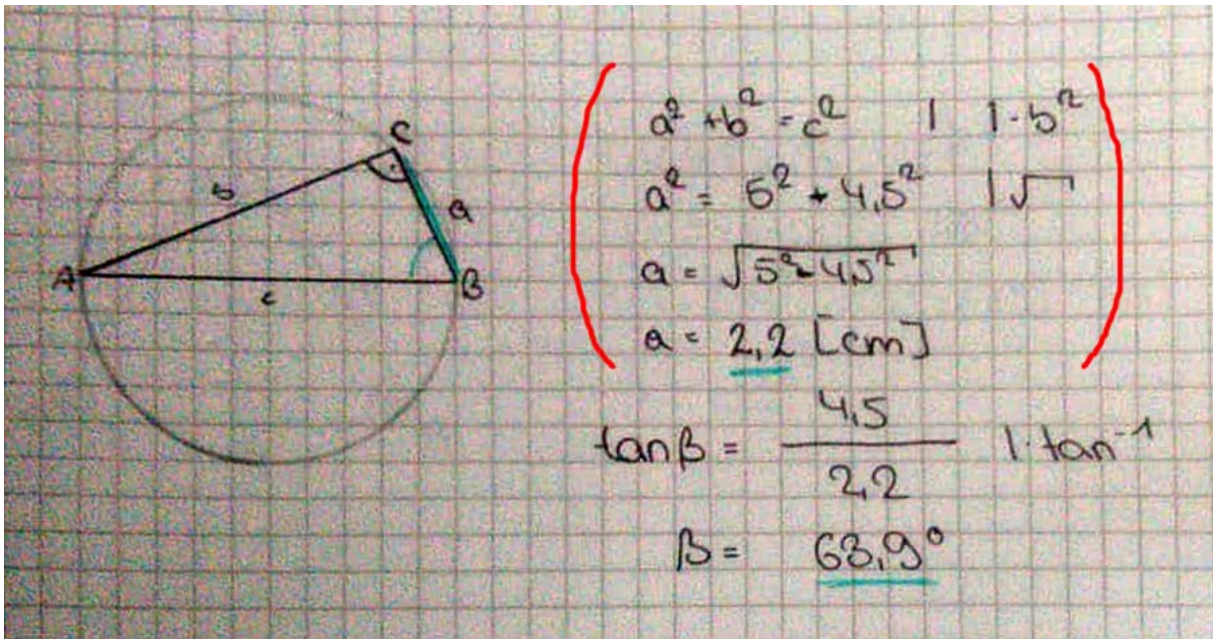 C
b
a
A
c
B
a² + b² = c² | |- b²
a² = 5² - 4,5² |√
a = √5² - 4,5²
a = 2,2 [cm]
tanβ = 4,5 / 2,2 | tan⁻¹
β = 63,9°